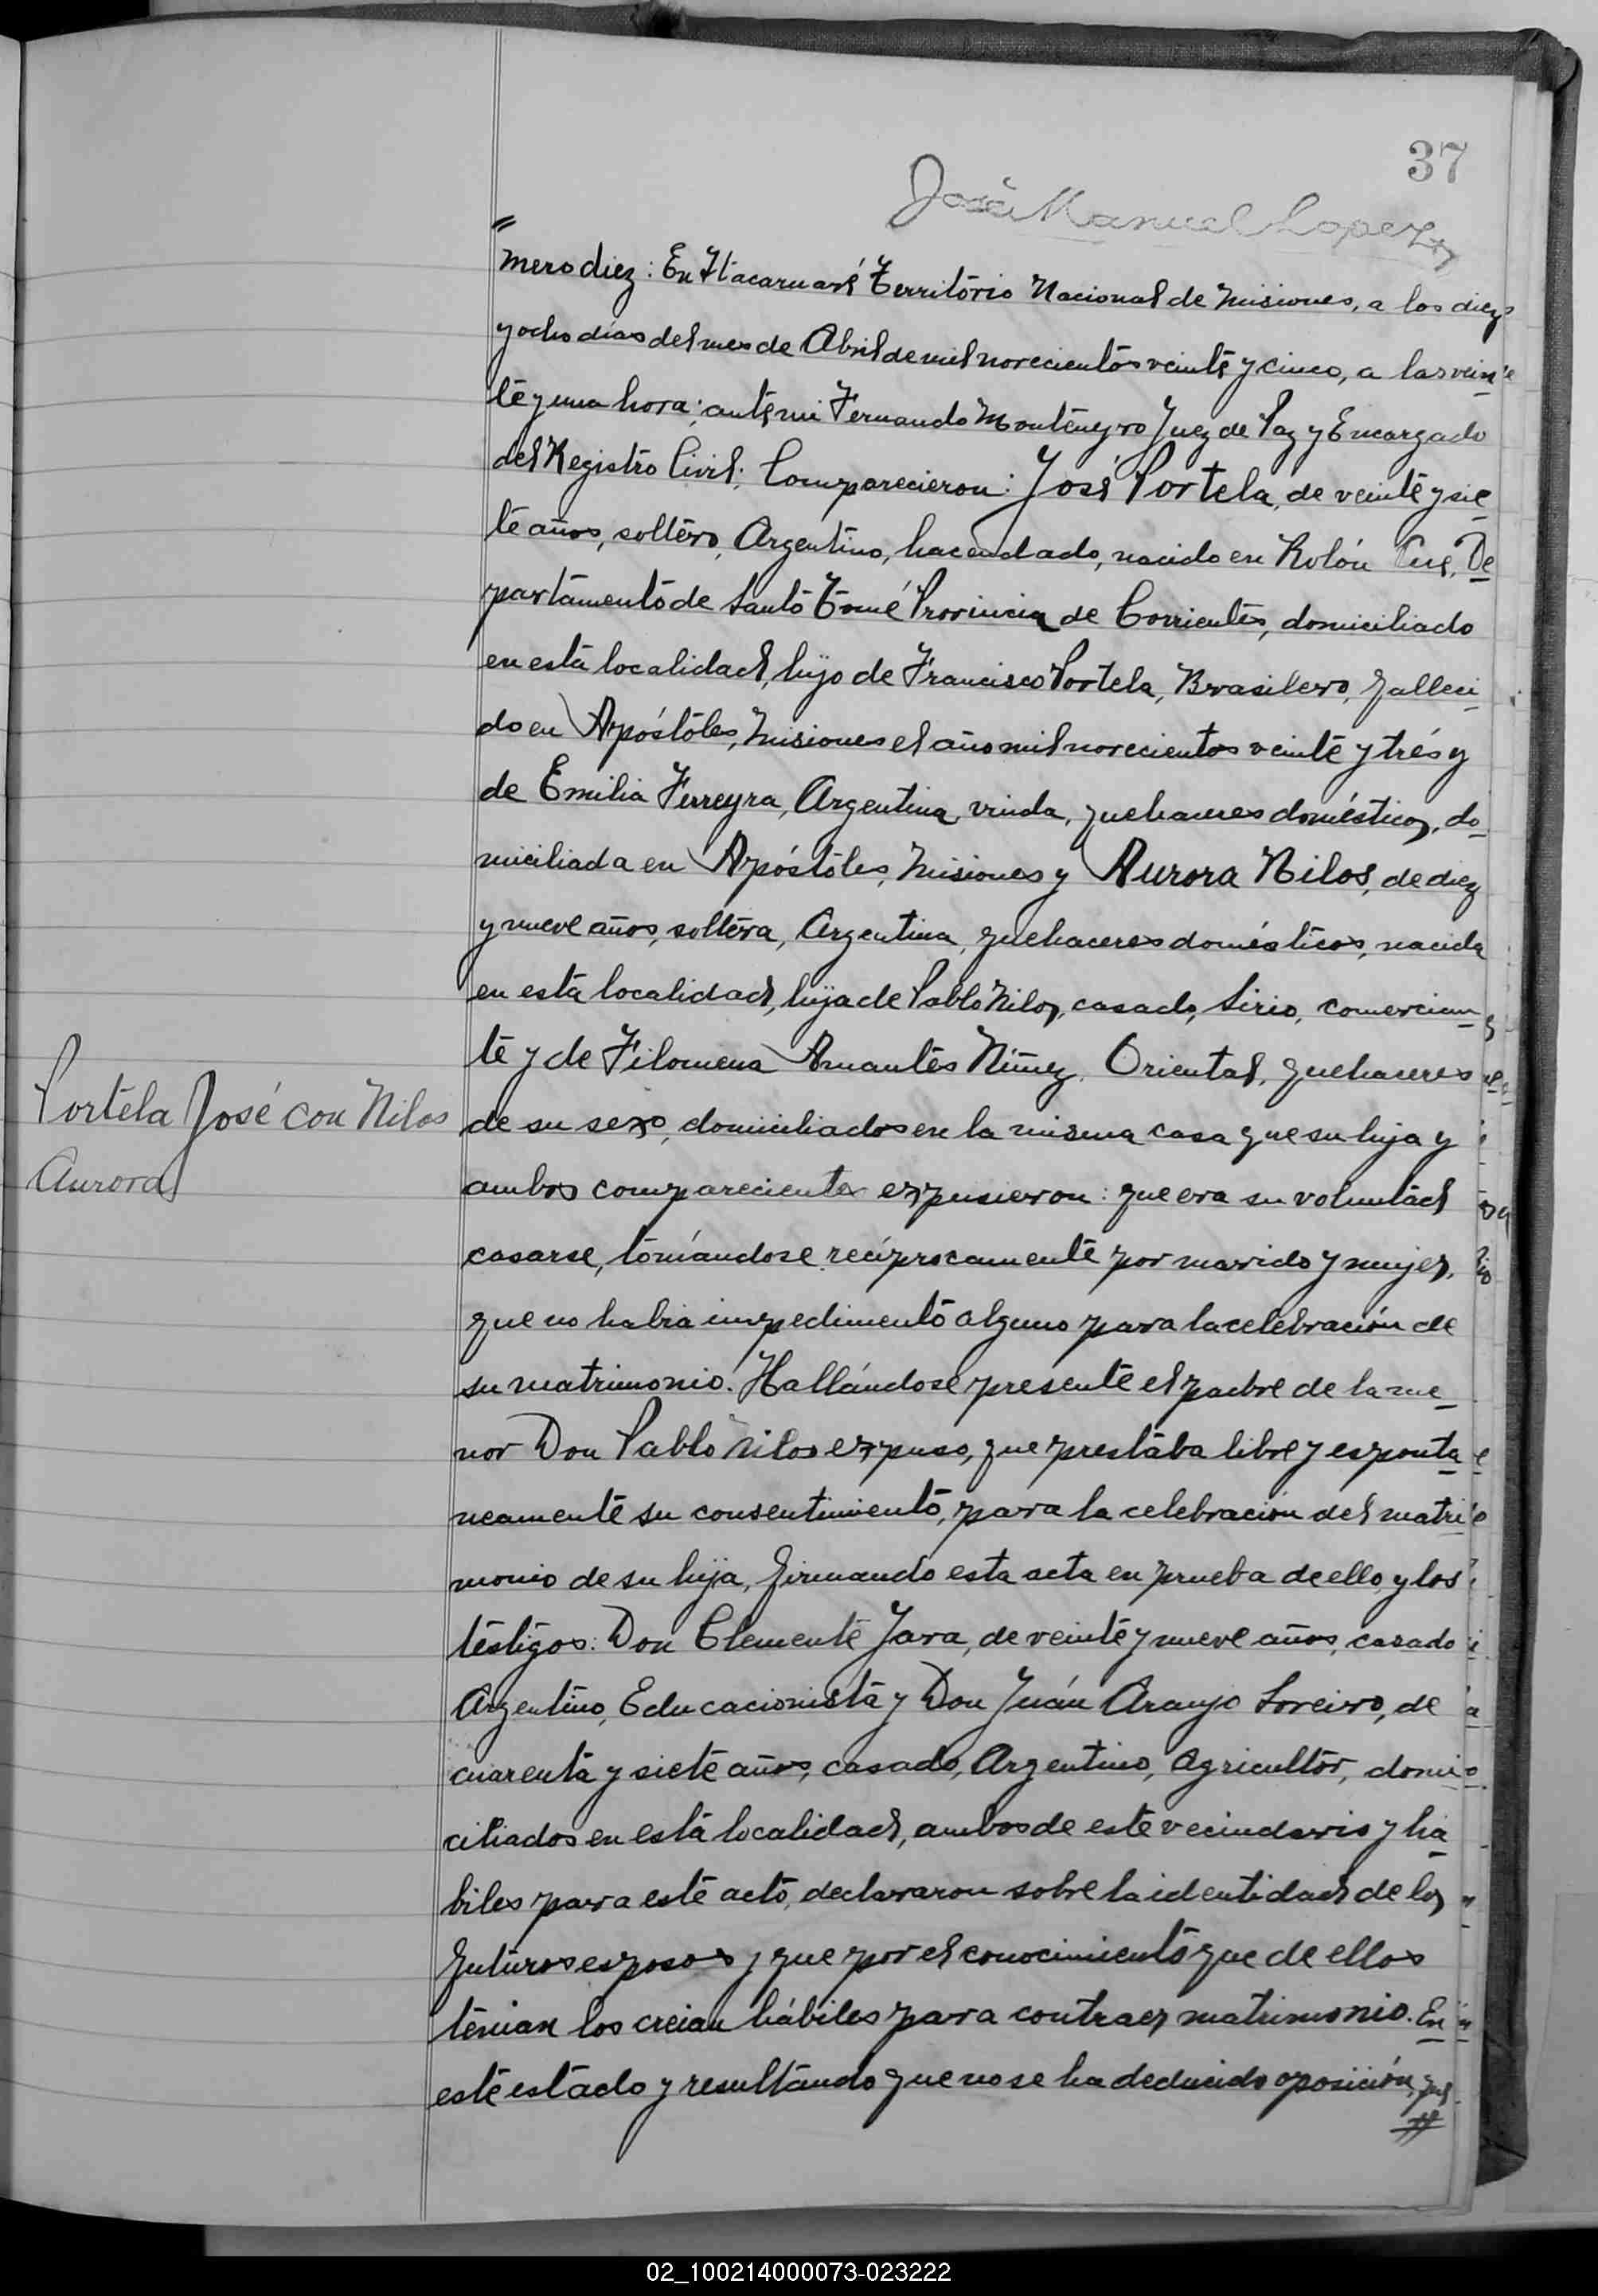 37
José Manuel Lopez
"
mero diez: En Itacaruaré Território Nacional de Misiones, a los diez
y ocho días del mes de Abril de mil novecientos veinte y cinco, a las vein
te y una hora; ante mi Fernando Montenegro Juez de Paz y Encargado
del Registro Civil; Comparecieron: José Portela, de veinte y sie
te años, soltero, Argentino, hacendado, nacido en Rolón Cué, De
partamento de Santo Tomé Provincia de Corrientes, domiciliado
en esta localidad, hijo de Francisco Portela, Brasilero, falleci
do en Apóstóles, Misiones el año mil novecientos veinte y trés y
de Emilia Ferreyra, Argentina, viuda, quehaceres domésticos, do
miciliada en Apóstóles, Misiones y Aurora Nilos, de diez
y nueve años, soltera, Argentina, quehaceres domésticos, nacida
en esta localidad, hija de Pablo Nilos, casado, Sirio, comercian
te y de Filomena Amantes Núñez, Oriental, quehaceres
Portela José con Nilos
Aurora
de su sexo, domiciliados en la misma casa que su hija y
ambos comparecientes expusieron: que era su voluntad
casarse, tomándose recíprocamente por marido y mujer,
que no habia impedimento alguno para la celebración de
su matrimonio. Hallándose presente el padre de la me
nor Don Pablo Nilos expuso, que prestaba libre y esponta
neamente su consentimiento, para la celebración del matri
monio de su hija, firmando esta acta en prueba de ello y los
testigos: Don Clemente Jara, de veinte y nueve años, casado
Argentino, Educacionista y Don Juán Araujo Loreiro, de
cuarenta y siete años, casado, Argentino, Agricultor, domi
ciliados en esta localidad, ambos de este vecindario y há
biles para este acto, declararon sobre la identidad de los
futuros esposos y que por el conocimiento que de ellos
tenian los creian hábiles para contraer matrimonio. En
este estado y resultando que no se ha deducido oposición, que
02_100214000073-023222